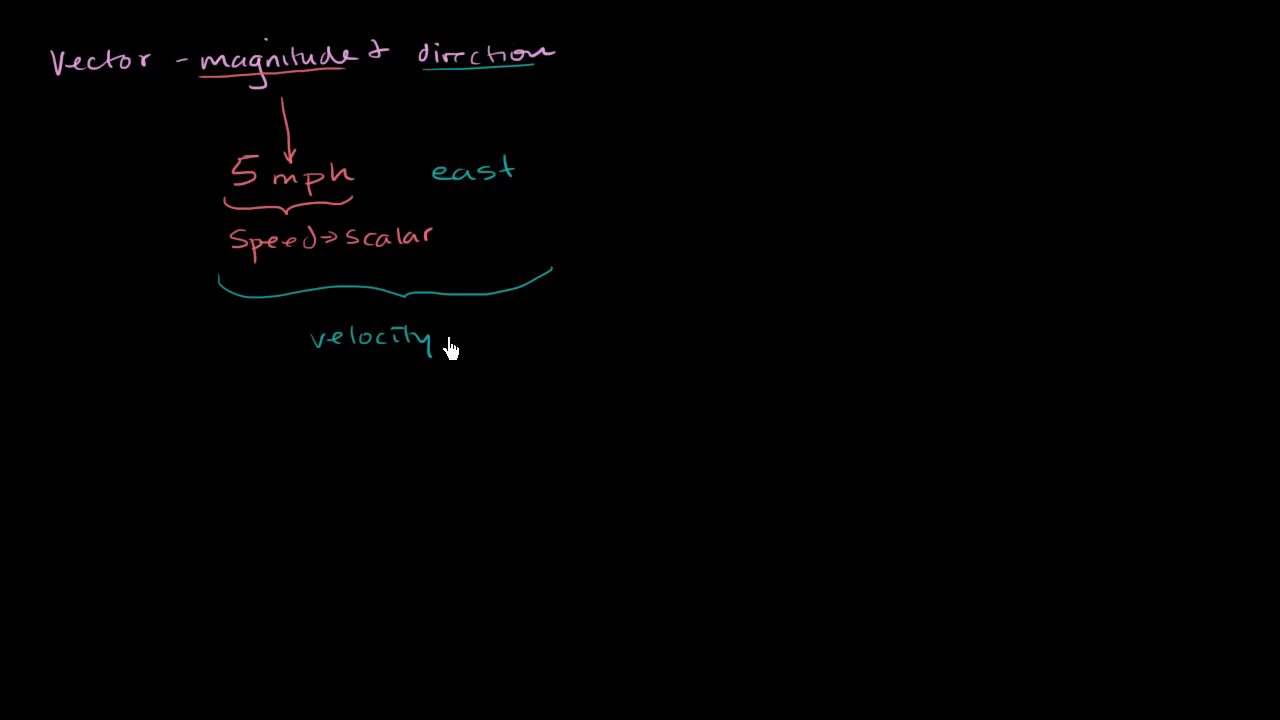 Vector - magnitude & direction
5 mph east
Speed ⇒ scalar
velocity